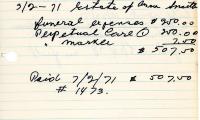 7/2-71 Estate of Anna Smith
funeral expenses $ 250.00
Perpetual Care 250.00
" marker 7.50
$ 507.50
Paid 7/2/71 $ 507.50
# 1473.